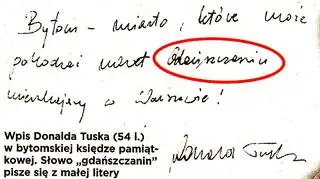 Bytom - miasto, które może
pokochać nawet Gdańszczanin
mieszkający w Warszawie!
Donald Tusk
Wpis Donalda Tuska (54 l.)
w bytomskiej księdze pamiąt-
kowej. Słowo „gdańszczanin”
pisze się z małej litery